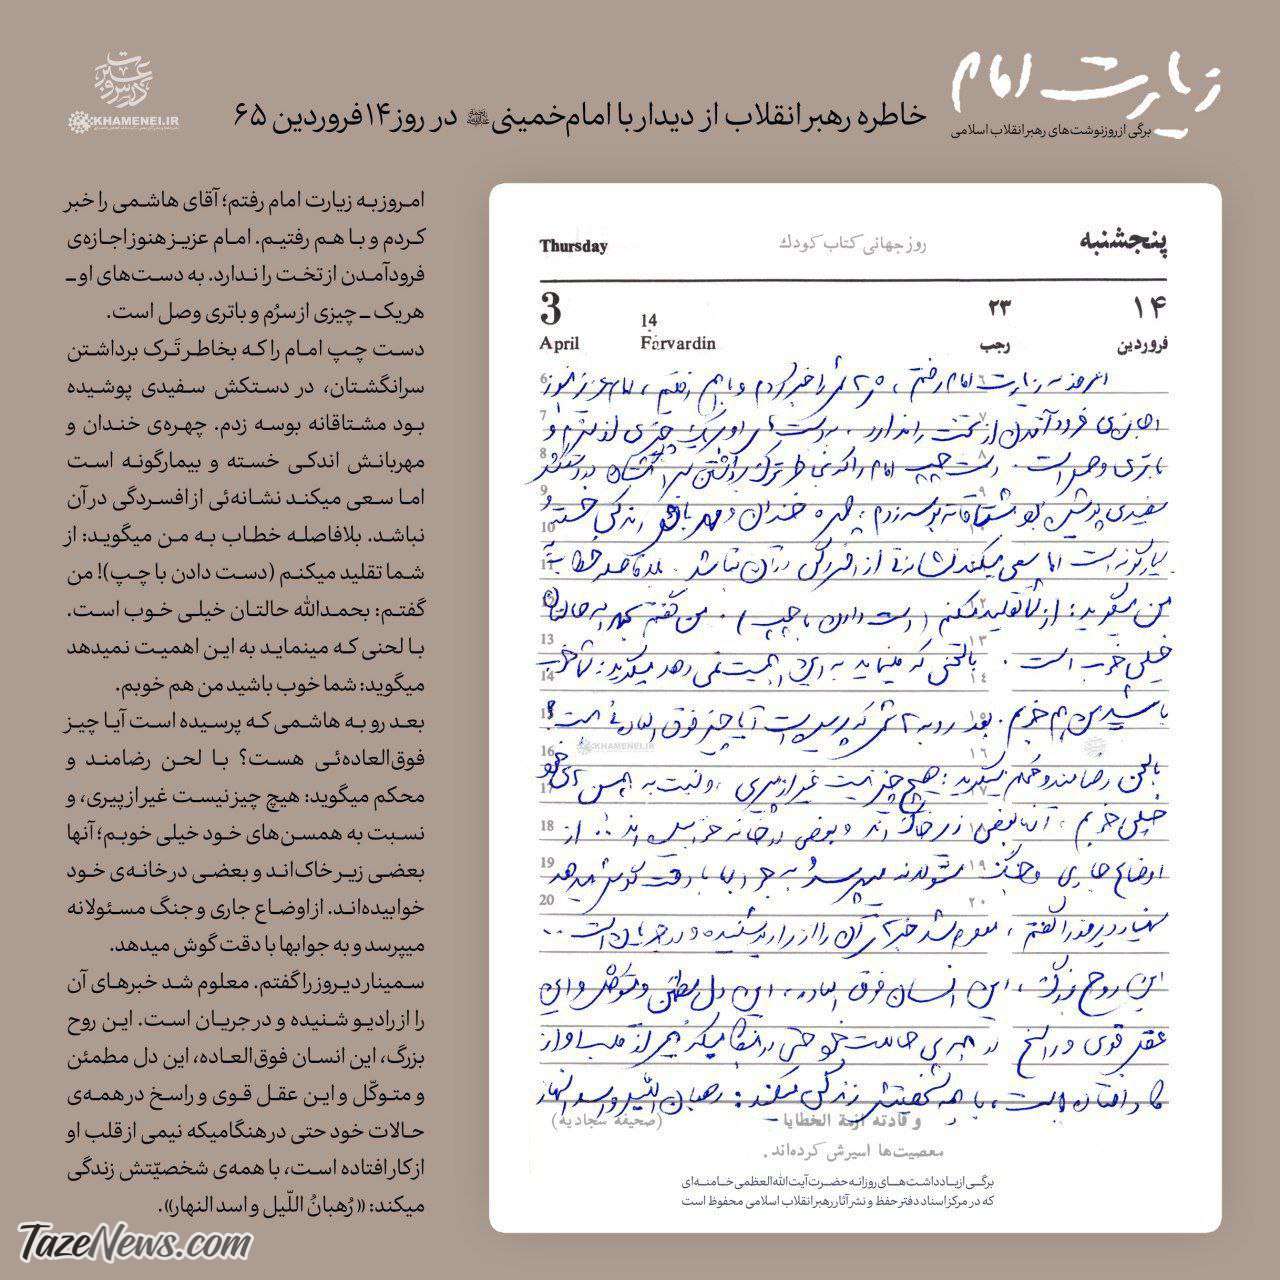 زیارت امام
برگی از روزنوشت‌های رهبر انقلاب اسلامی
خاطره رهبر انقلاب از دیدار با امام خمینی در روز ۱۴ فروردین ۶۵
KHAMENEI.IR
امروز به زیارت امام رفتم؛ آقای هاشمی را خبر
کردم و با هم رفتیم. امام عزیز هنوز اجازه‌ی
فرودآمدن از تخت را ندارد. به دست‌های او ـ
هریک ـ چیزی از سرُم و باتری وصل است.
دست چپ امام را که بخاطر تَرک برداشتن
سرانگشتان، در دستکش سفیدی پوشیده
بود مشتاقانه بوسه زدم. چهره‌ی خندان و
مهربانش اندکی خسته و بیمارگونه است
اما سعی میکند نشانه‌ئی از افسردگی در آن
نباشد. بلافاصله خطاب به من میگوید: از
شما تقلید میکنم (دست دادن با چپ)! من
گفتم: بحمدالله حالتان خیلی خوب است.
با لحنی که مینماید به این اهمیت نمیدهد
میگوید: شما خوب باشید من هم خوبم.
بعد رو به هاشمی که پرسیده است آیا چیز
فوق‌العاده‌ئی هست؟ با لحن رضامند و
محکم میگوید: هیچ چیز نیست غیر از پیری، و
نسبت به همسن‌های خود خیلی خوبم؛ آنها
بعضی زیر خاک‌اند و بعضی در خانه‌ی خود
خوابیده‌اند. از اوضاع جاری و جنگ مسئولانه
میپرسد و به جوابها با دقت گوش میدهد.
سمینار دیروز را گفتم. معلوم شد خبرهای آن
را از رادیو شنیده و در جریان است. این روح
بزرگ، این انسان فوق‌العاده، این دل مطمئن
و متوکّل و این عقل قوی و راسخ در همه‌ی
حالات خود حتی در هنگامیکه نیمی از قلب او
از کار افتاده است، با همه‌ی شخصیّتش زندگی
میکند: «رُهبانُ اللّیل و اسد النهار».
پنجشنبه
روز جهانی کتاب کودک
Thursday
۱۴
۲۳
14
3
فروردین
رجب
Farvardin
April
امروز به زیارت امام رفتم، هاشمی را خبر کردم و با هم رفتیم، امام عزیز هنوز
اجازه‌ی فرودآمدن از تخت را ندارد. به دست‌های او هریک چیزی از سرم و
باتری وصل است. دست چپ امام را که بخاطر ترک برداشتن سرانگشتان در دستکش
سفیدی پوشیده بود مشتاقانه بوسه زدم، چهره خندان و مهربانش اندکی خسته و
بیمارگونه است اما سعی میکند نشانه‌ئی از افسردگی در آن نباشد. بلافاصله خطاب به
من میگوید: از شما تقلید میکنم (دست دادن با چپ). من گفتم بحمدالله حالتان
خیلی خوب است. با لحنی که مینماید به این اهمیت نمی دهد میگوید: شما خوب
باشید من هم خوبم. بعد رو به هاشمی که پرسیده است آیا چیز فوق العاده‌ئی هست؟
با لحن رضامند و محکم میگوید: هیچ چیز نیست غیر از پیری، و نسبت به همسن های خود
خیلی خوبم، آنها بعضی زیر خاک اند و بعضی در خانه خوابیده اند.. از
اوضاع جاری و جنگ مسئولانه میپرسد و به جوابها با دقت گوش میدهد
سمینار دیروز را گفتم، معلوم شد خبرهای آن را از رادیو شنیده و در جریان است..
این روح بزرگ، این انسان فوق العاده، این دل مطمئن و متوکل و این
عقل قوی و راسخ در همه‌ی حالات خود حتی در هنگامیکه نیمی از قلب او از
کار افتاده است، با همه شخصیتش زندگی میکند: رهبان اللیل و اسد النهار
و قادته ازمة الخطایا (صحیفه سجادیه)
معصیت‌ها اسیرش کرده‌اند.
برگی از یادداشت‌های روزانه حضرت آیت‌الله العظمی خامنه‌ای
که در مرکز اسناد دفتر حفظ و نشر آثار رهبر انقلاب اسلامی محفوظ است
TazeNews.com